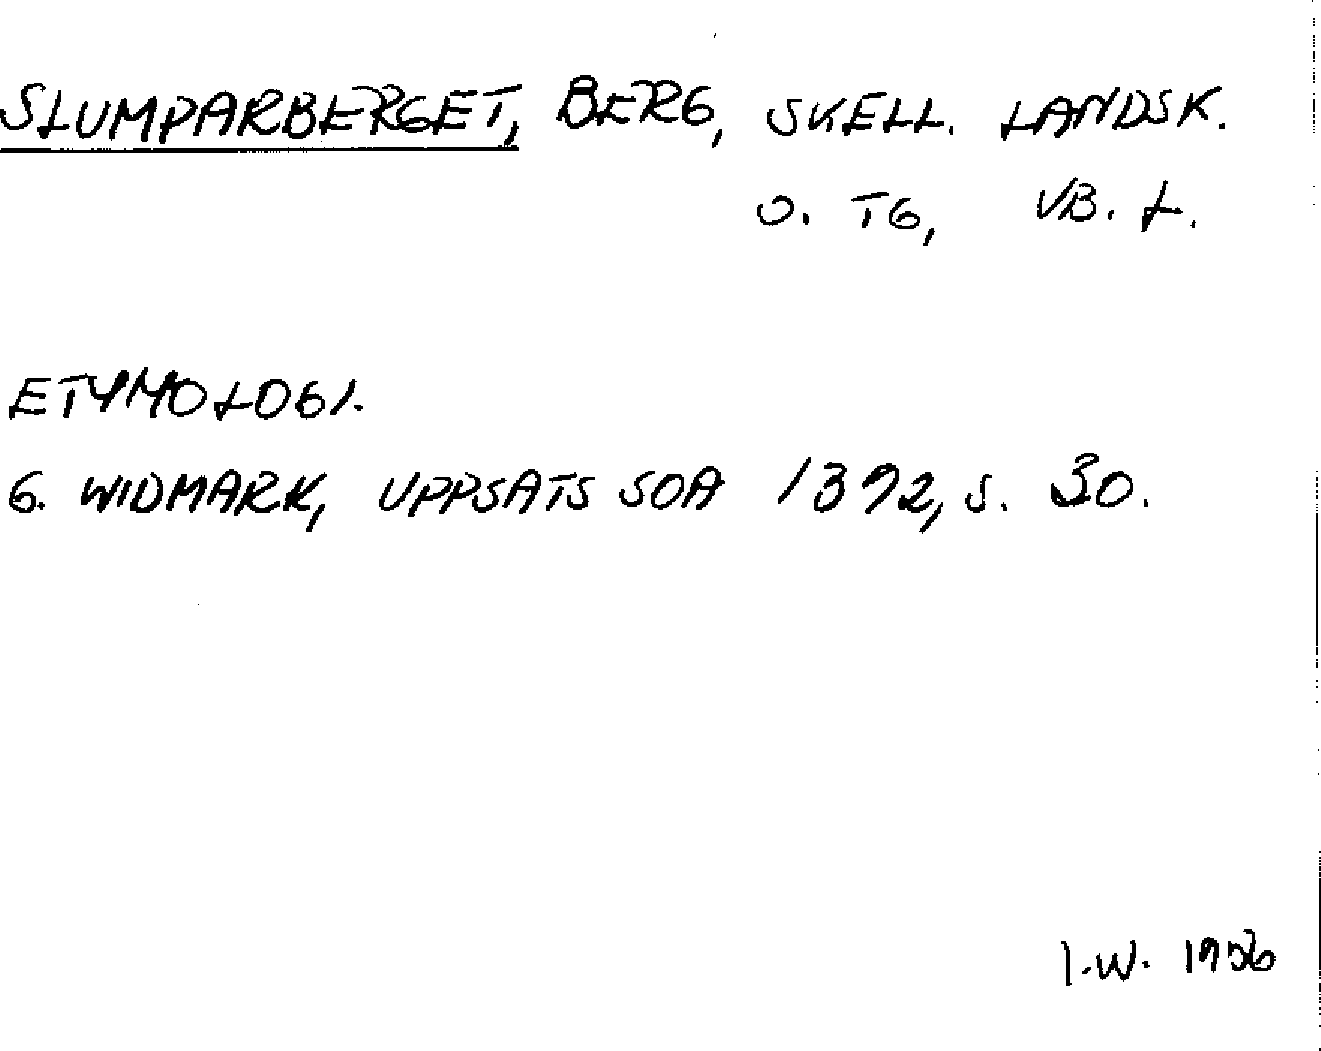 SLUMPARBERGET, BERG, SKELL. LANDSK.
O. TG, VB. L.
ETYMOLOGI.
G. WIDMARK, UPPSATS SOA 1392, S. 30.
I.W. 1956